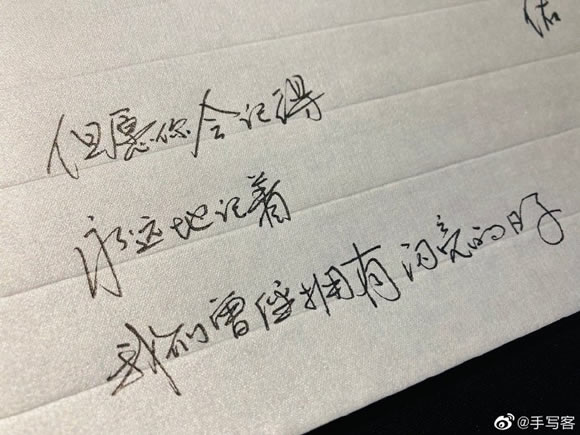 佑
但愿你会记得
永远地记着
我们曾经拥有闪亮的日子
@手写客